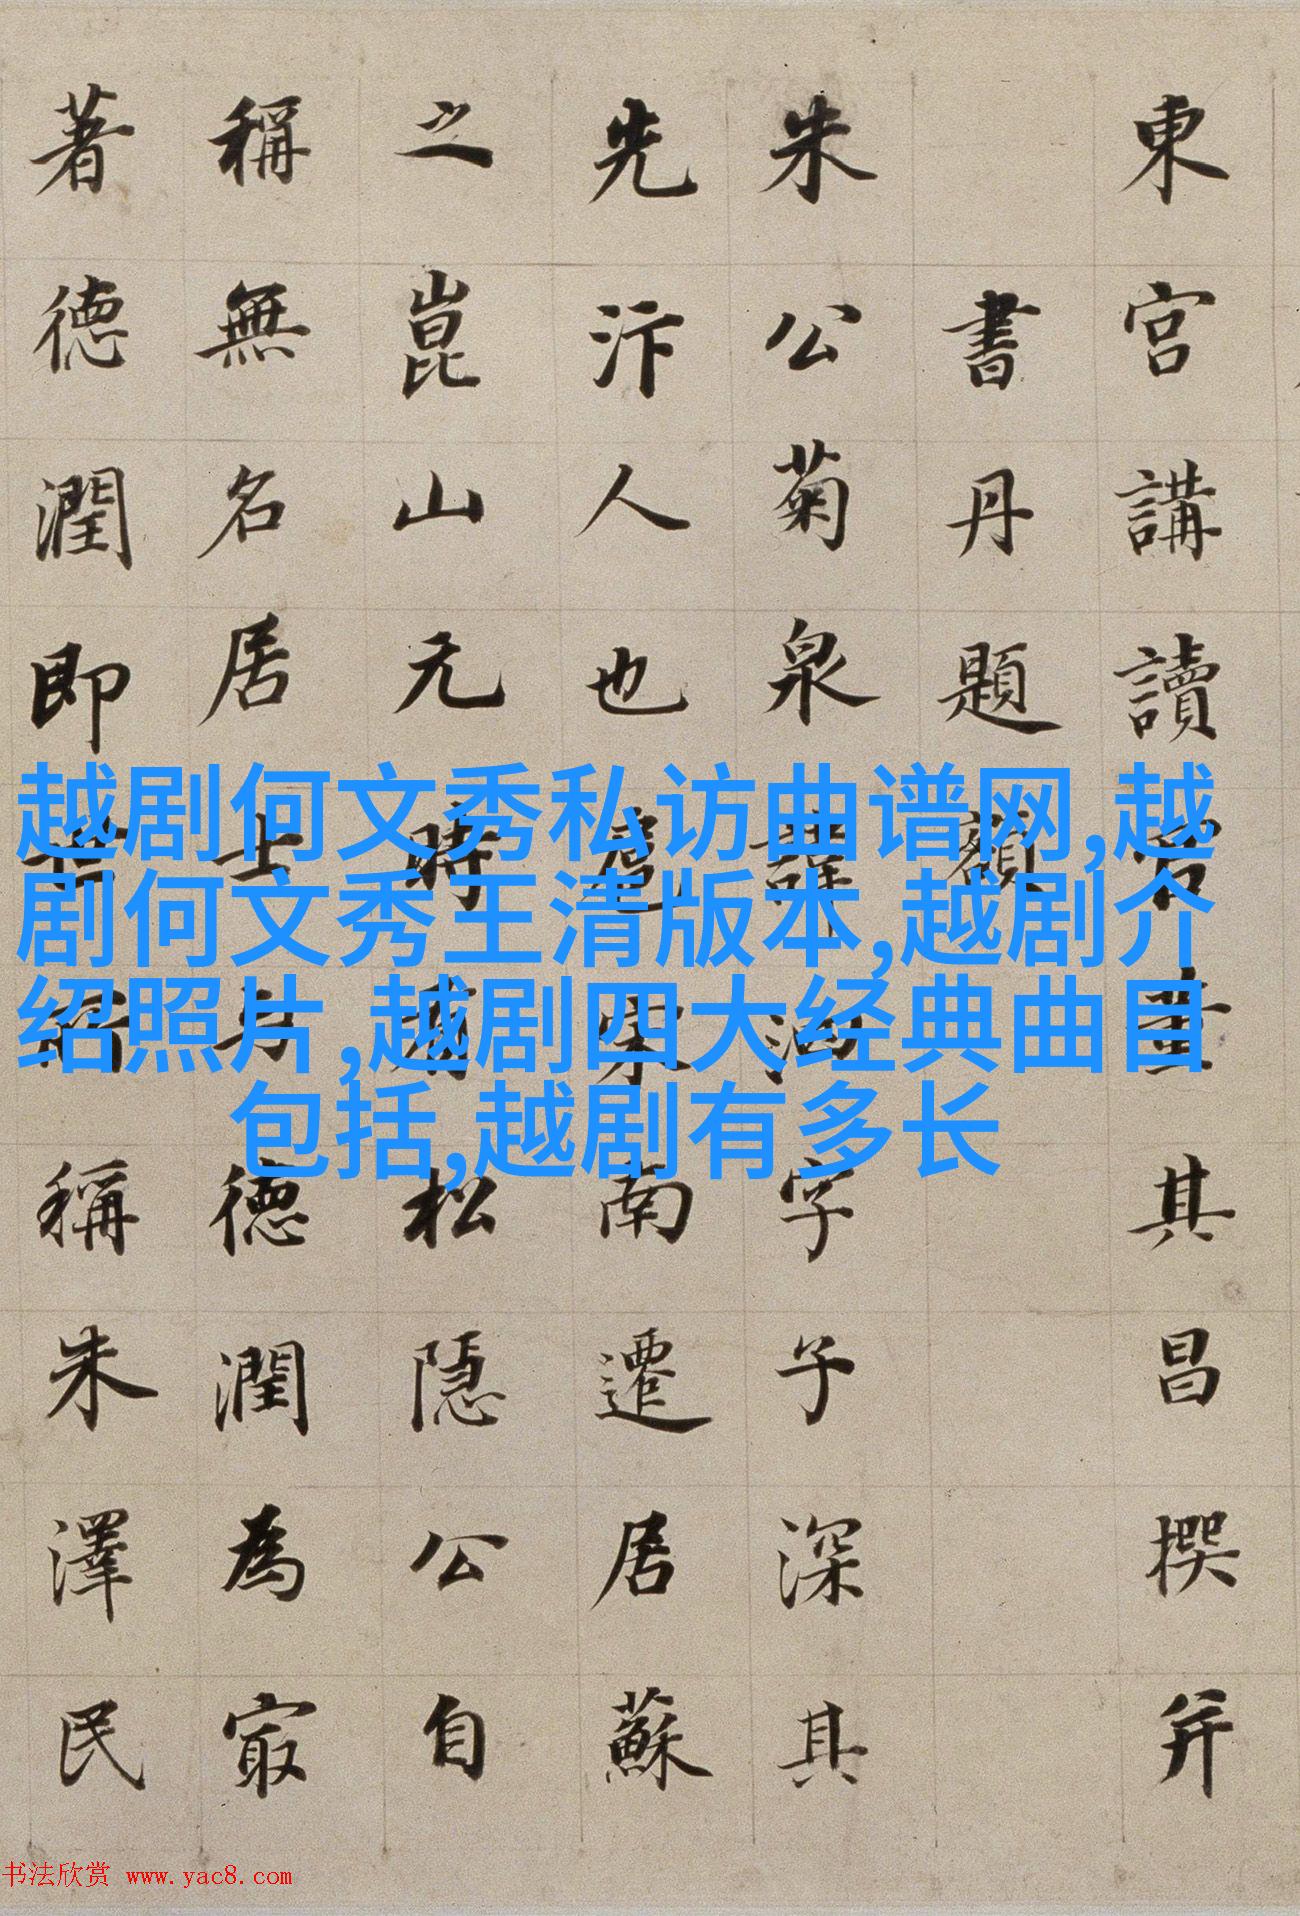 東宮講讀官董其昌撰并
書丹題額
朱公菊泉諱字子深其
先汴人也扈宋南遷居蘇
之崑山元時有松隱公自
稱無名居士与德潤為最
著德潤即世所稱朱澤民
越剧何文秀私访曲谱网,越
剧何文秀王清版本,越剧介
绍照片,越剧四大经典曲目
包括,越剧有多长
书法欣赏 www.yac8.com